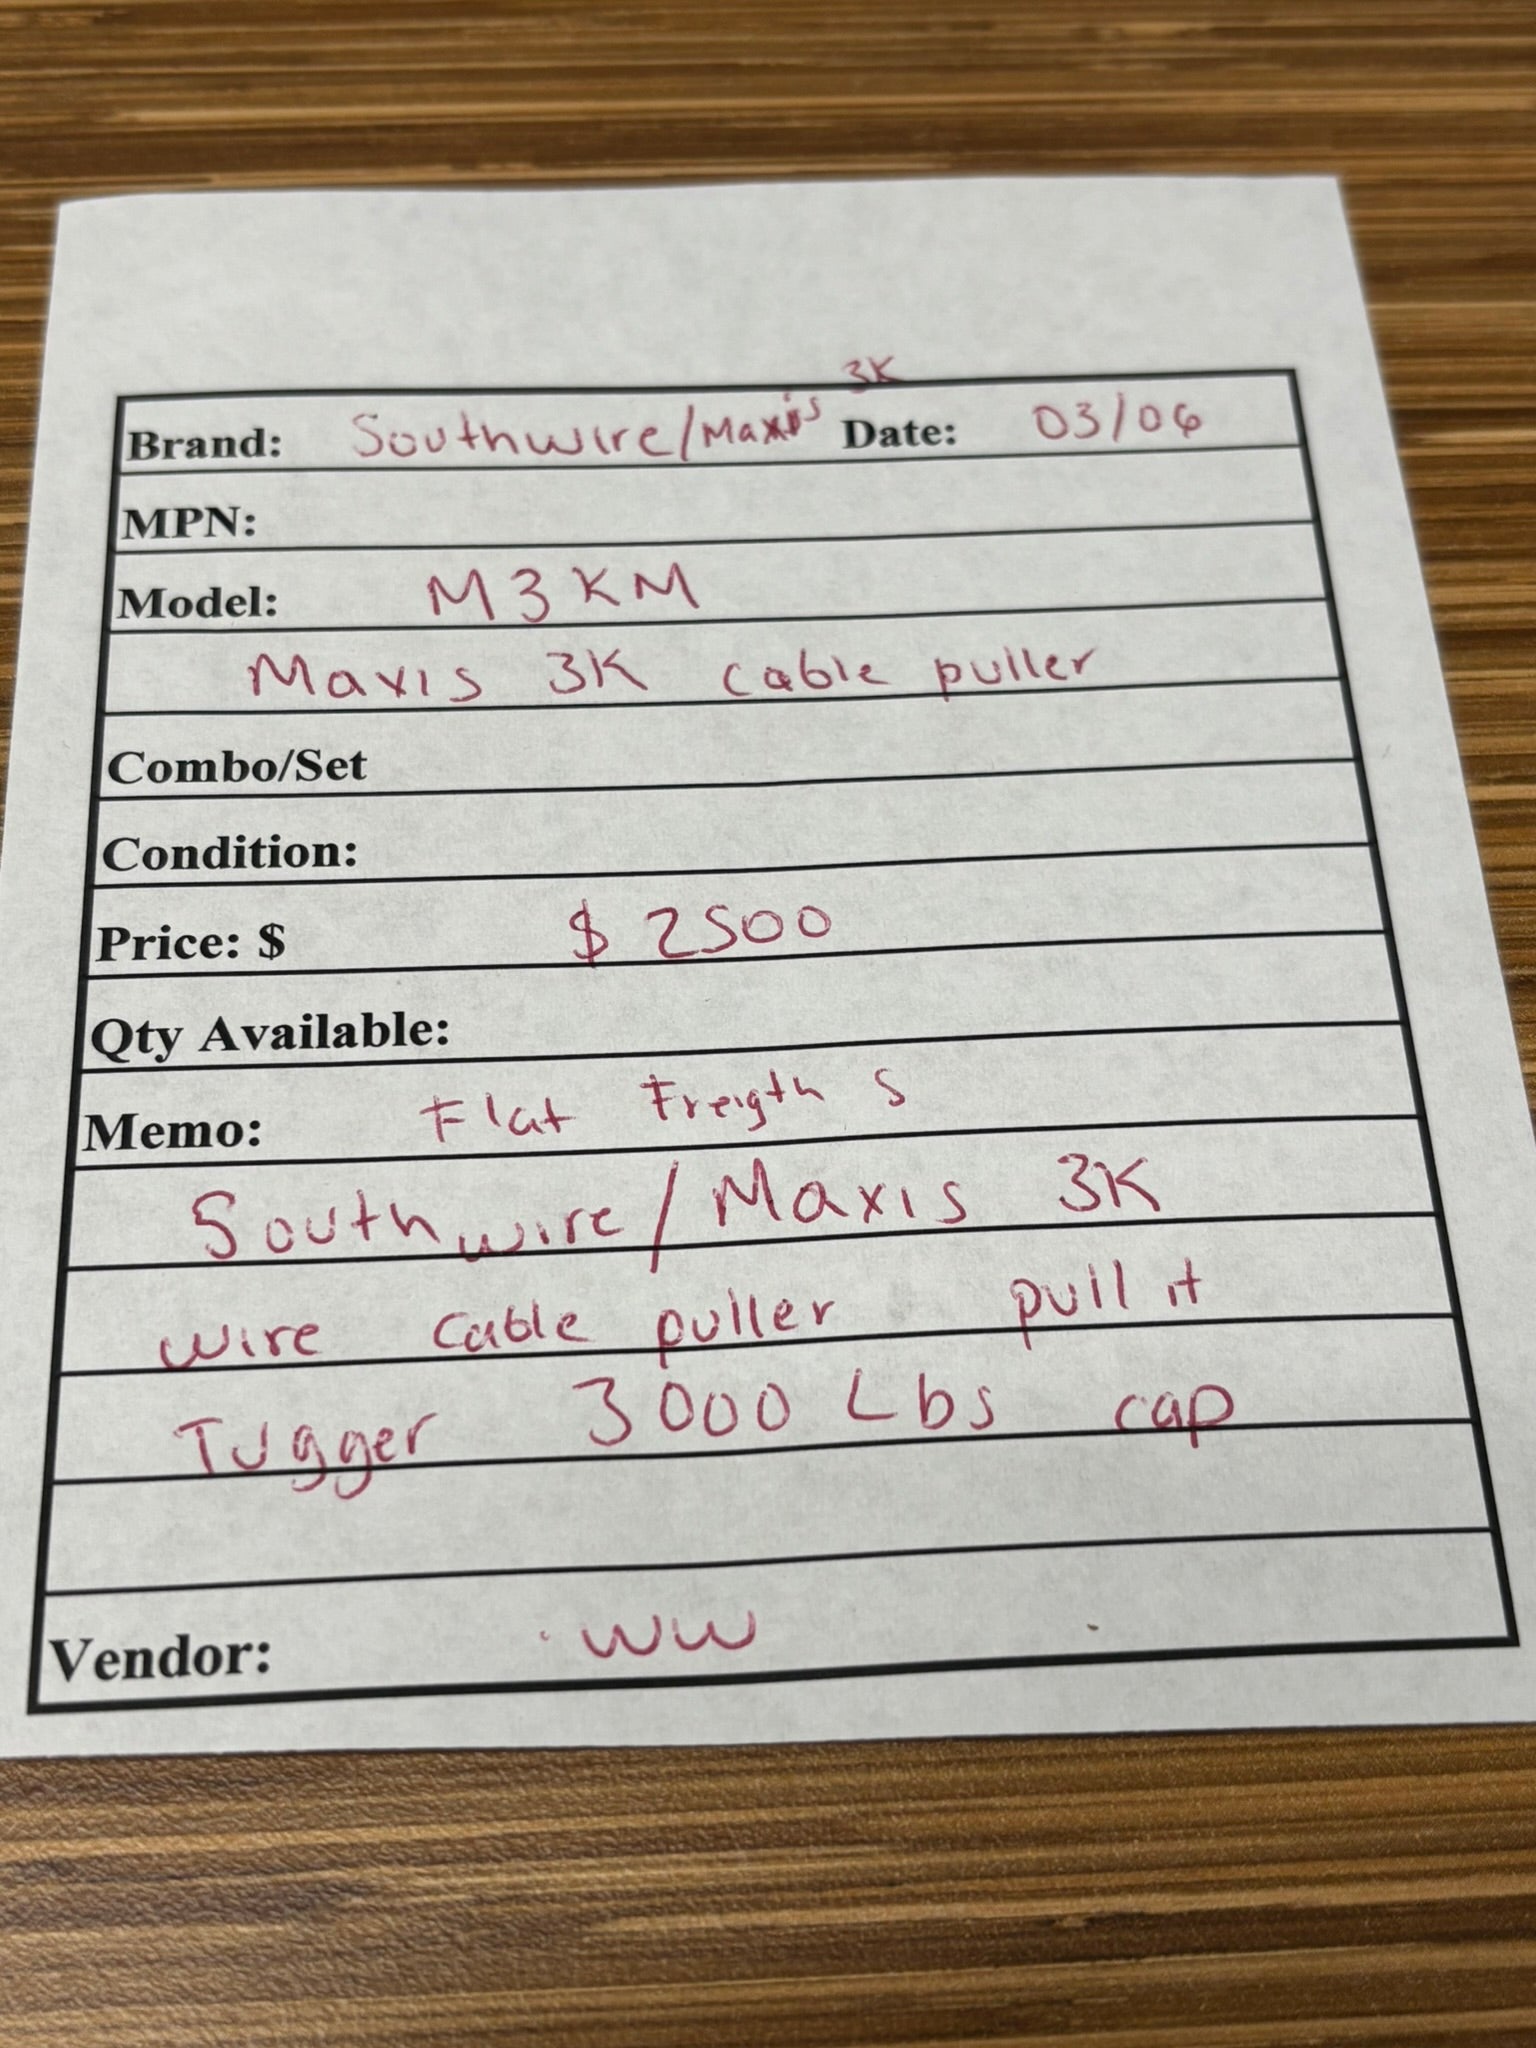 3K
Brand: Southwire/Maxis Date: 03/06
MPN:
Model: M3KM
Maxis 3K cable puller
Combo/Set
Condition:
Price: $ $2500
Qty Available:
Memo: Flat Freigth S
Southwire/Maxis 3K
wire cable puller pull it
Tugger 3000 Lbs cap
Vendor: WW